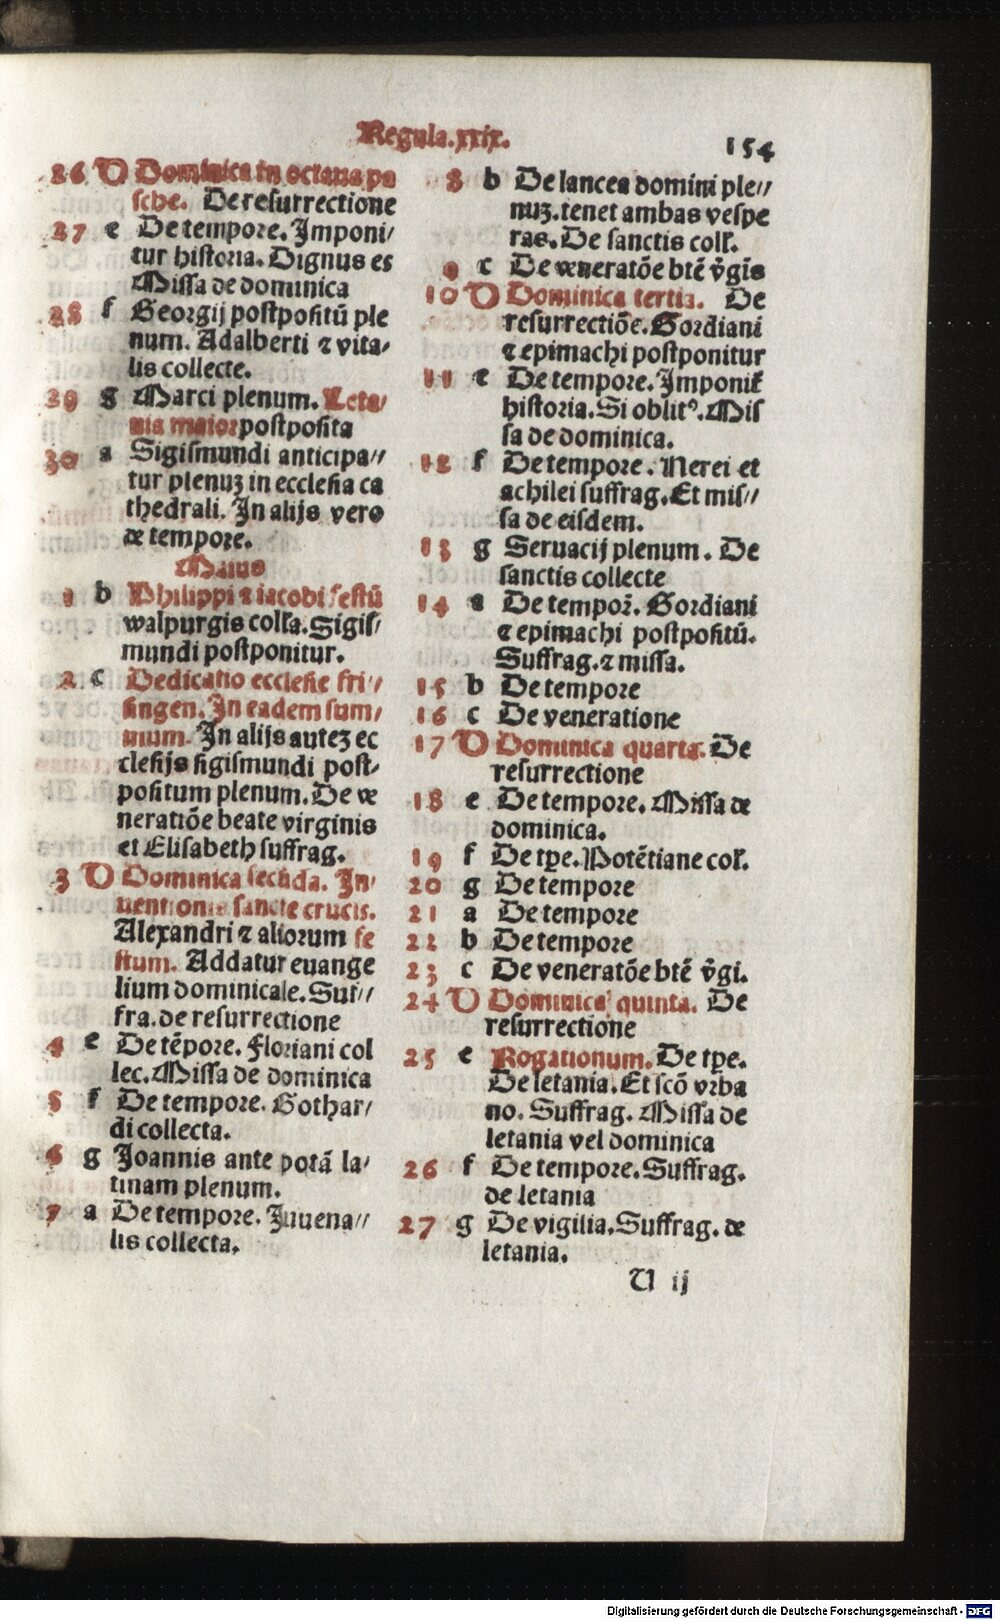 Regula.xxix.
154
26 D Dominica in octaua pa
sche. De resurrectione
27 e De tempore. Imponi/
tur historia. Dignus es
Missa de dominica
28 f Georgij postpositū ple
num. Adalberti ⁊ vita/
lis collecte.
29 g Marci plenum. Leta/
nia maior postposita
30 a Sigismundi anticipa//
tur plenuꝫ in ecclesia ca
thedrali. In alijs vero
de tempore.
Maius
1 b Philippi ⁊ iacobi festū
walpurgis coll'a. Sigis/
mundi postponitur.
2 c Dedicatio ecclesie fri//
singen. In eadem sum/
mum. In alijs auteꝫ ec
clesijs sigismundi post/
positum plenum. De ve
neratiōe beate virginis
et Elisabeth suffrag.
3 D Dominica secūda. In/
uentionis sancte crucis.
Alexandri ⁊ aliorum fe
stum. Addatur euange
lium dominicale. Suf//
fra. de resurrectione
4 e De tēpore. Floriani col
lec. Missa de dominica
5 f De tempore. Gothar/
di collecta.
6 g Joannis ante portā la/
tinam plenum.
7 a De tempore. Juuena//
lis collecta.
8 b De lancea domini ple//
nuꝫ. tenet ambas vespe
ras. De sanctis coll'.
9 c De veneratōe btē v̄gīs
10 D Dominica tertia. De
resurrectiōe. Gordiani
⁊ epimachi postponitur
11 e De tempore. Imponit̄
historia. Si oblitꝰ. Mis
sa de dominica.
12 f De tempore. Nerei et
achilei suffrag. Et mis//
sa de eisdem.
13 g Seruacij plenum. De
sanctis collecte
14 a De tempor̄. Gordiani
⁊ epimachi postpositū.
Suffrag. ⁊ missa.
15 b De tempore
16 c De veneratione
17 D Dominica quarta. De
resurrectione
18 e De tempore. Missa de
dominica.
19 f De tp̄e. Potētiane col'.
20 g De tempore
21 a De tempore
22 b De tempore
23 c De veneratōe btē v̄gi.
24 D Dominica quinta. De
resurrectione
25 e Rogationum. De tp̄e.
De letania. Et scō vrba
no. Suffrag. Missa de
letania vel dominica
26 f De tempore. Suffrag.
de letania
27 g De vigilia. Suffrag. de
letania.
U ij
Digitalisierung gefördert durch die Deutsche Forschungsgemeinschaft - DFG